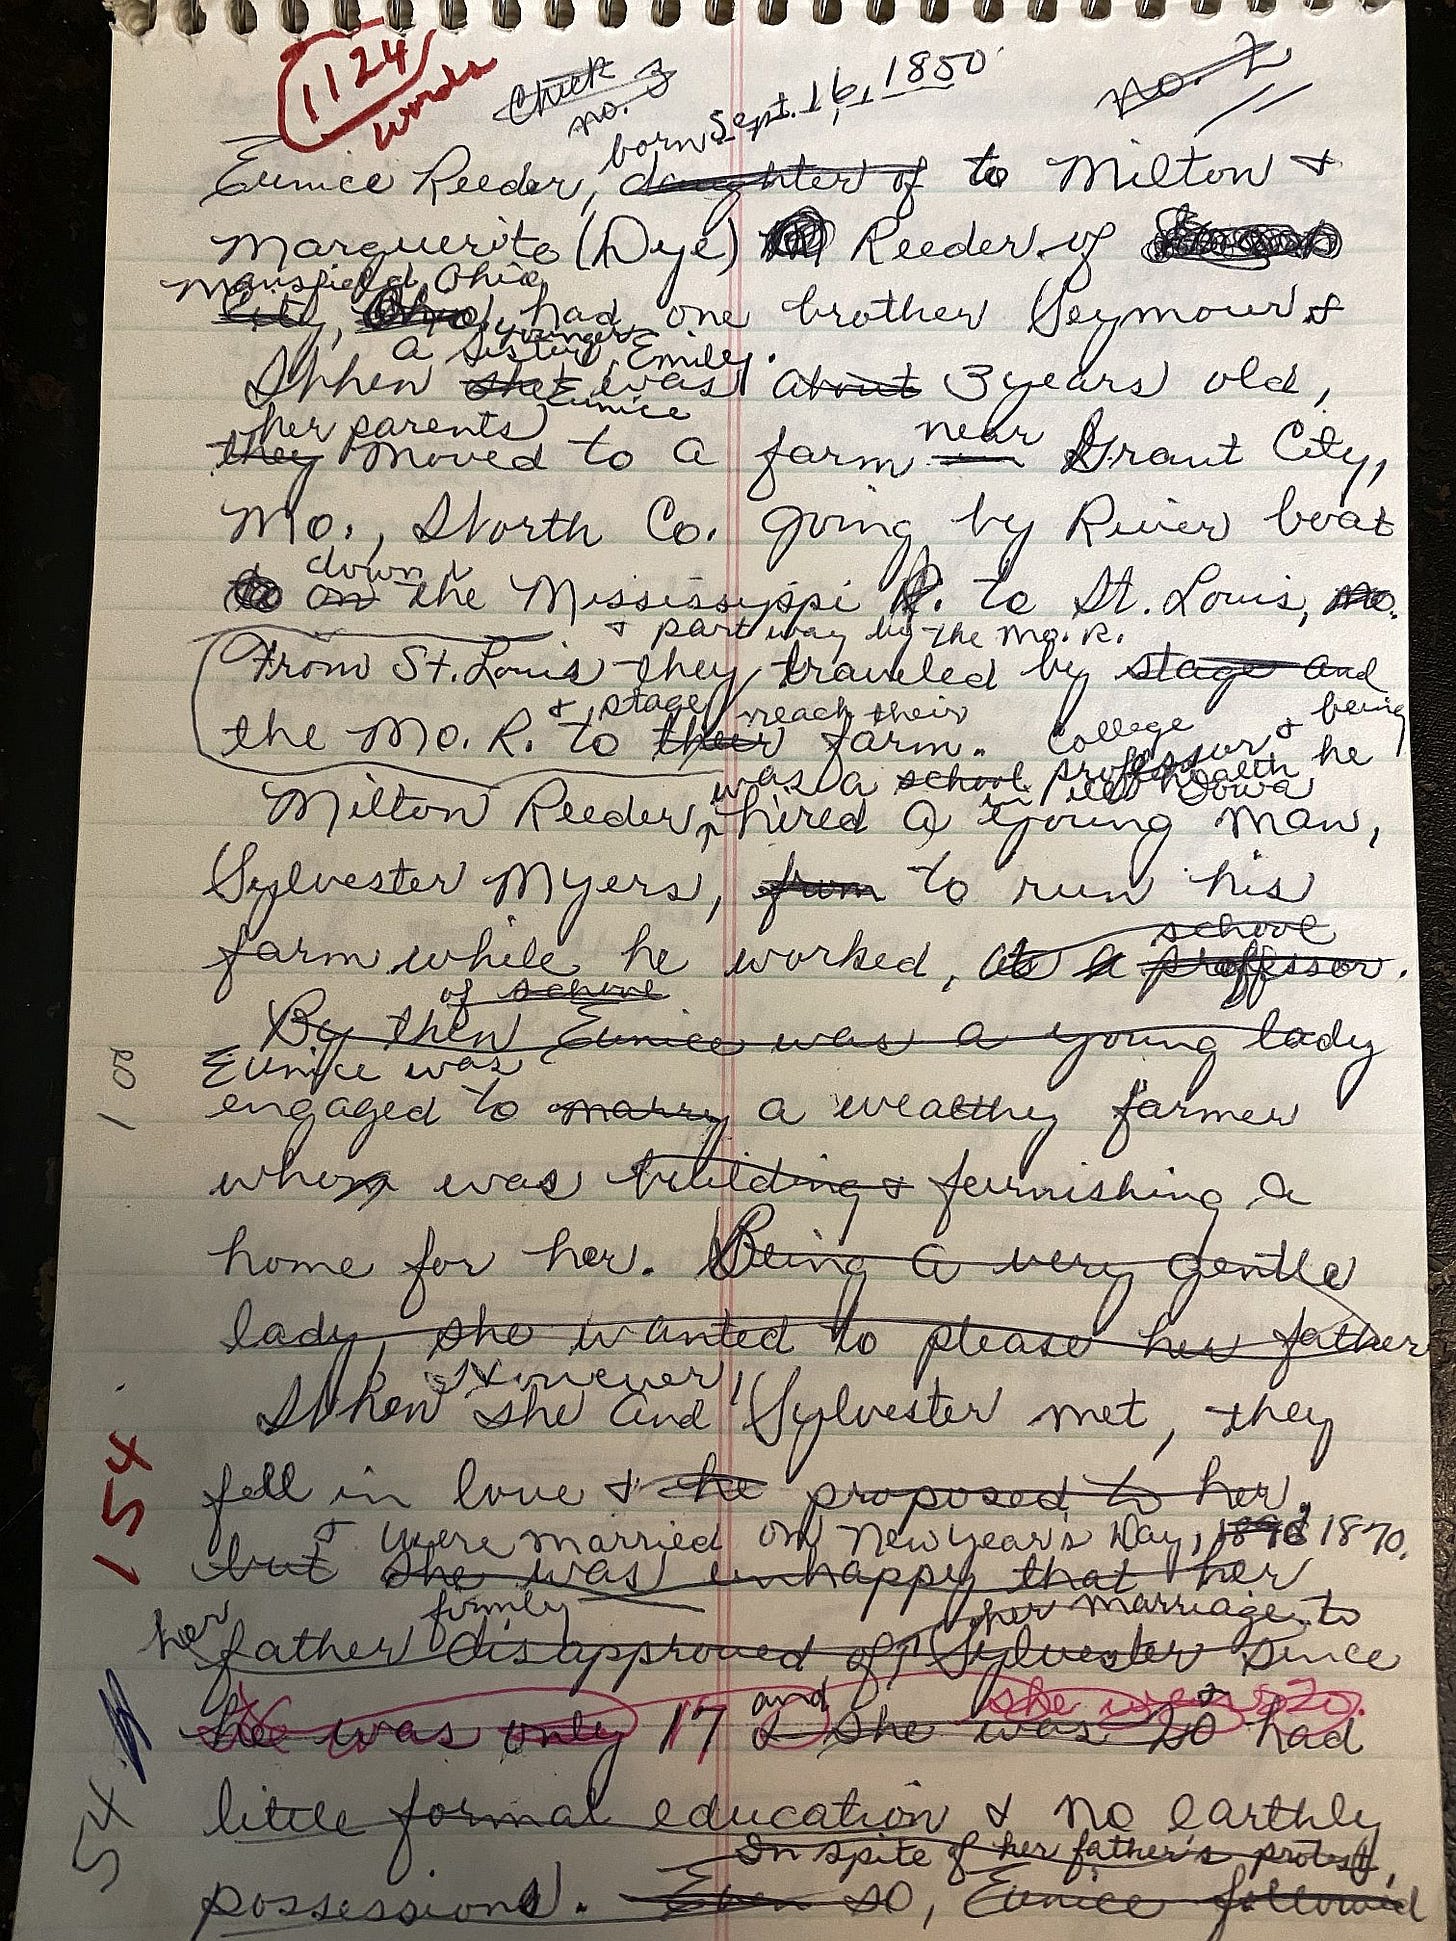 1124
words
Check
no. 3
no. 2
born Sept. 16, 1850
Eunice Reeder, daughter of to Milton &
Marguerite (Dye) Reeder of
Mansfield, Ohio
City, Ohio, had one brother Seymour &
a younger sister, Emily.
When she was about 3 years old,
Eunice
her parents
they moved to a farm near Grant City,
Mo., Worth Co. going by River boat
down
on the Mississippi R. to St. Louis, Mo.
& part way by the Mo. R.
From St. Louis they traveled by stage and
& stage reach their
the Mo. R. to their farm.
was a school College professor & being
in ill health he
Iowa
Milton Reeder, hired a young man,
Sylvester Myers, from to run his
school
farm while he worked, as a professor.
of school
By then Eunice was a young lady
Eunice was
engaged to marry a wealthy farmer
whom was building & furnishing a
home for her. Being a very gentle
lady, she wanted to please her father
However,
When she and Sylvester met, they
fell in love & he proposed to her,
& were married on New Year's Day, 1870.
but she was unhappy that her
firmly her marriage to
her father disapproved of Sylvester since
and she was 20.
he was only 17 & she was 20 had
little formal education & no earthly
In spite of her father's protest,
possessions. Even so, Eunice followed
20
1
154
54